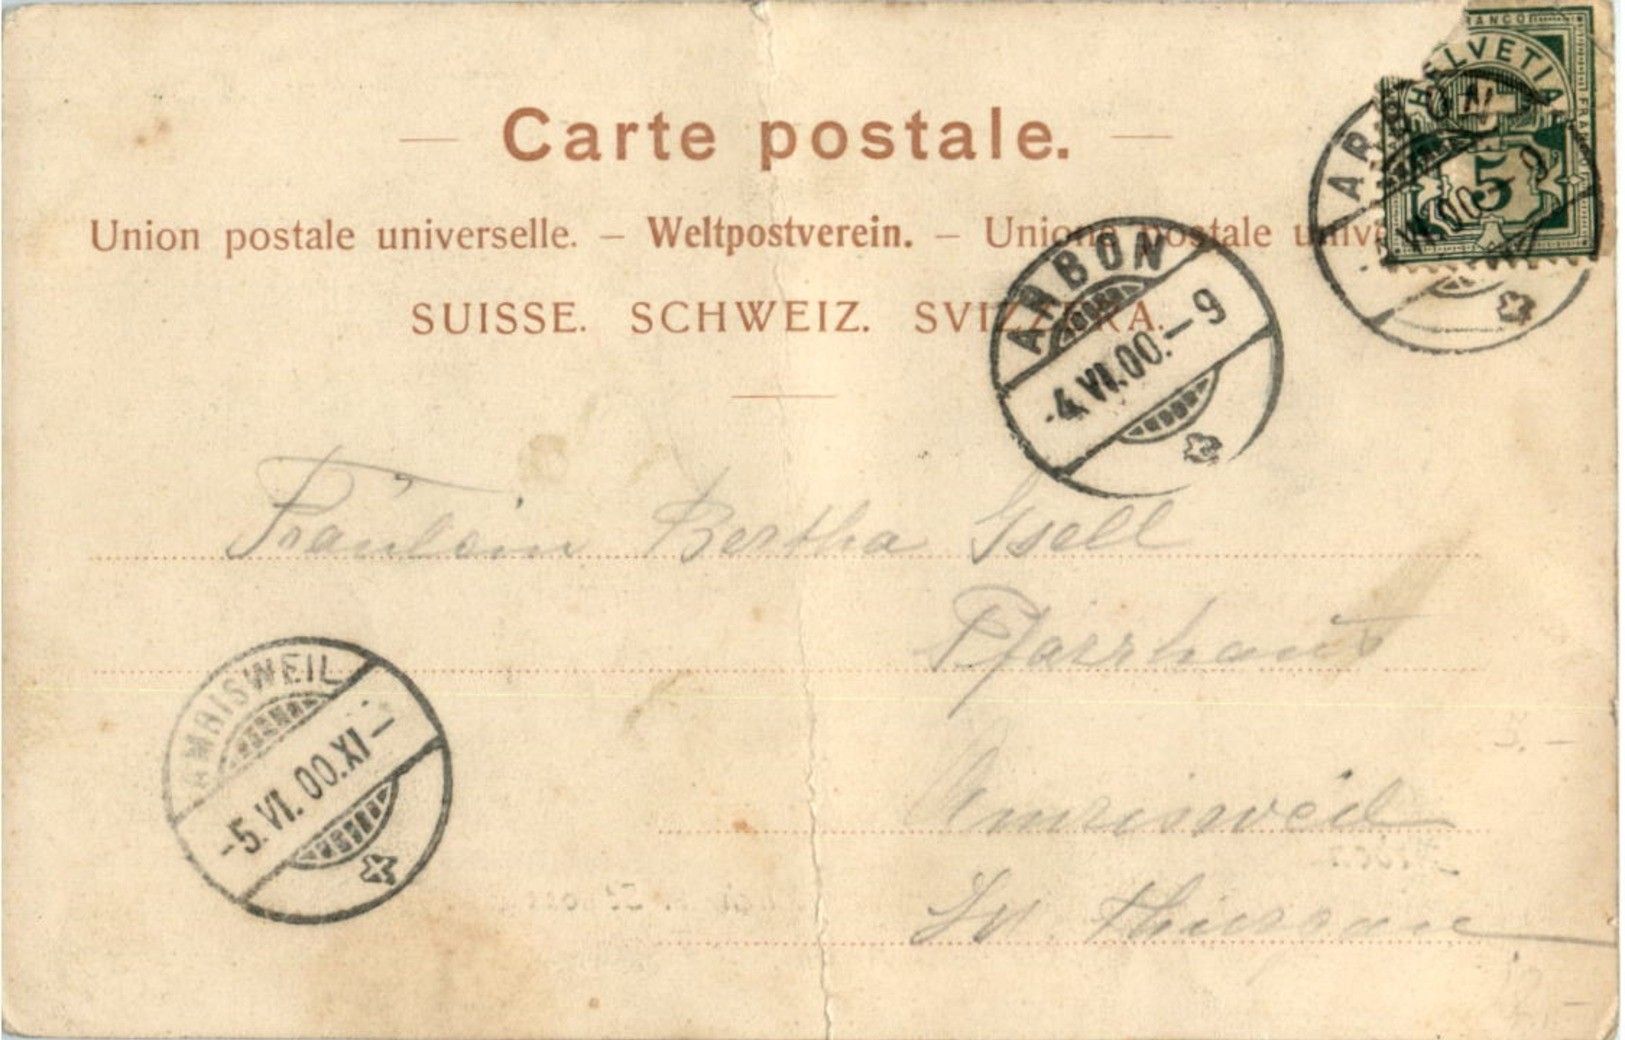 FRANCO
HELVETIA
FRANCO
5
Carte postale.
Union postale universelle. – Weltpostverein. – Unione postale univ
SUISSE. SCHWEIZ. SVIZZERA.
ARBON
-4.VI.00.–9
ARBON
-4.VI.00.–9
Fräulein Bertha Gsell
Pfarrhaus
AMRISWEIL
-5.VI.00.XI–
Amrisweil
Kt. Thurgau